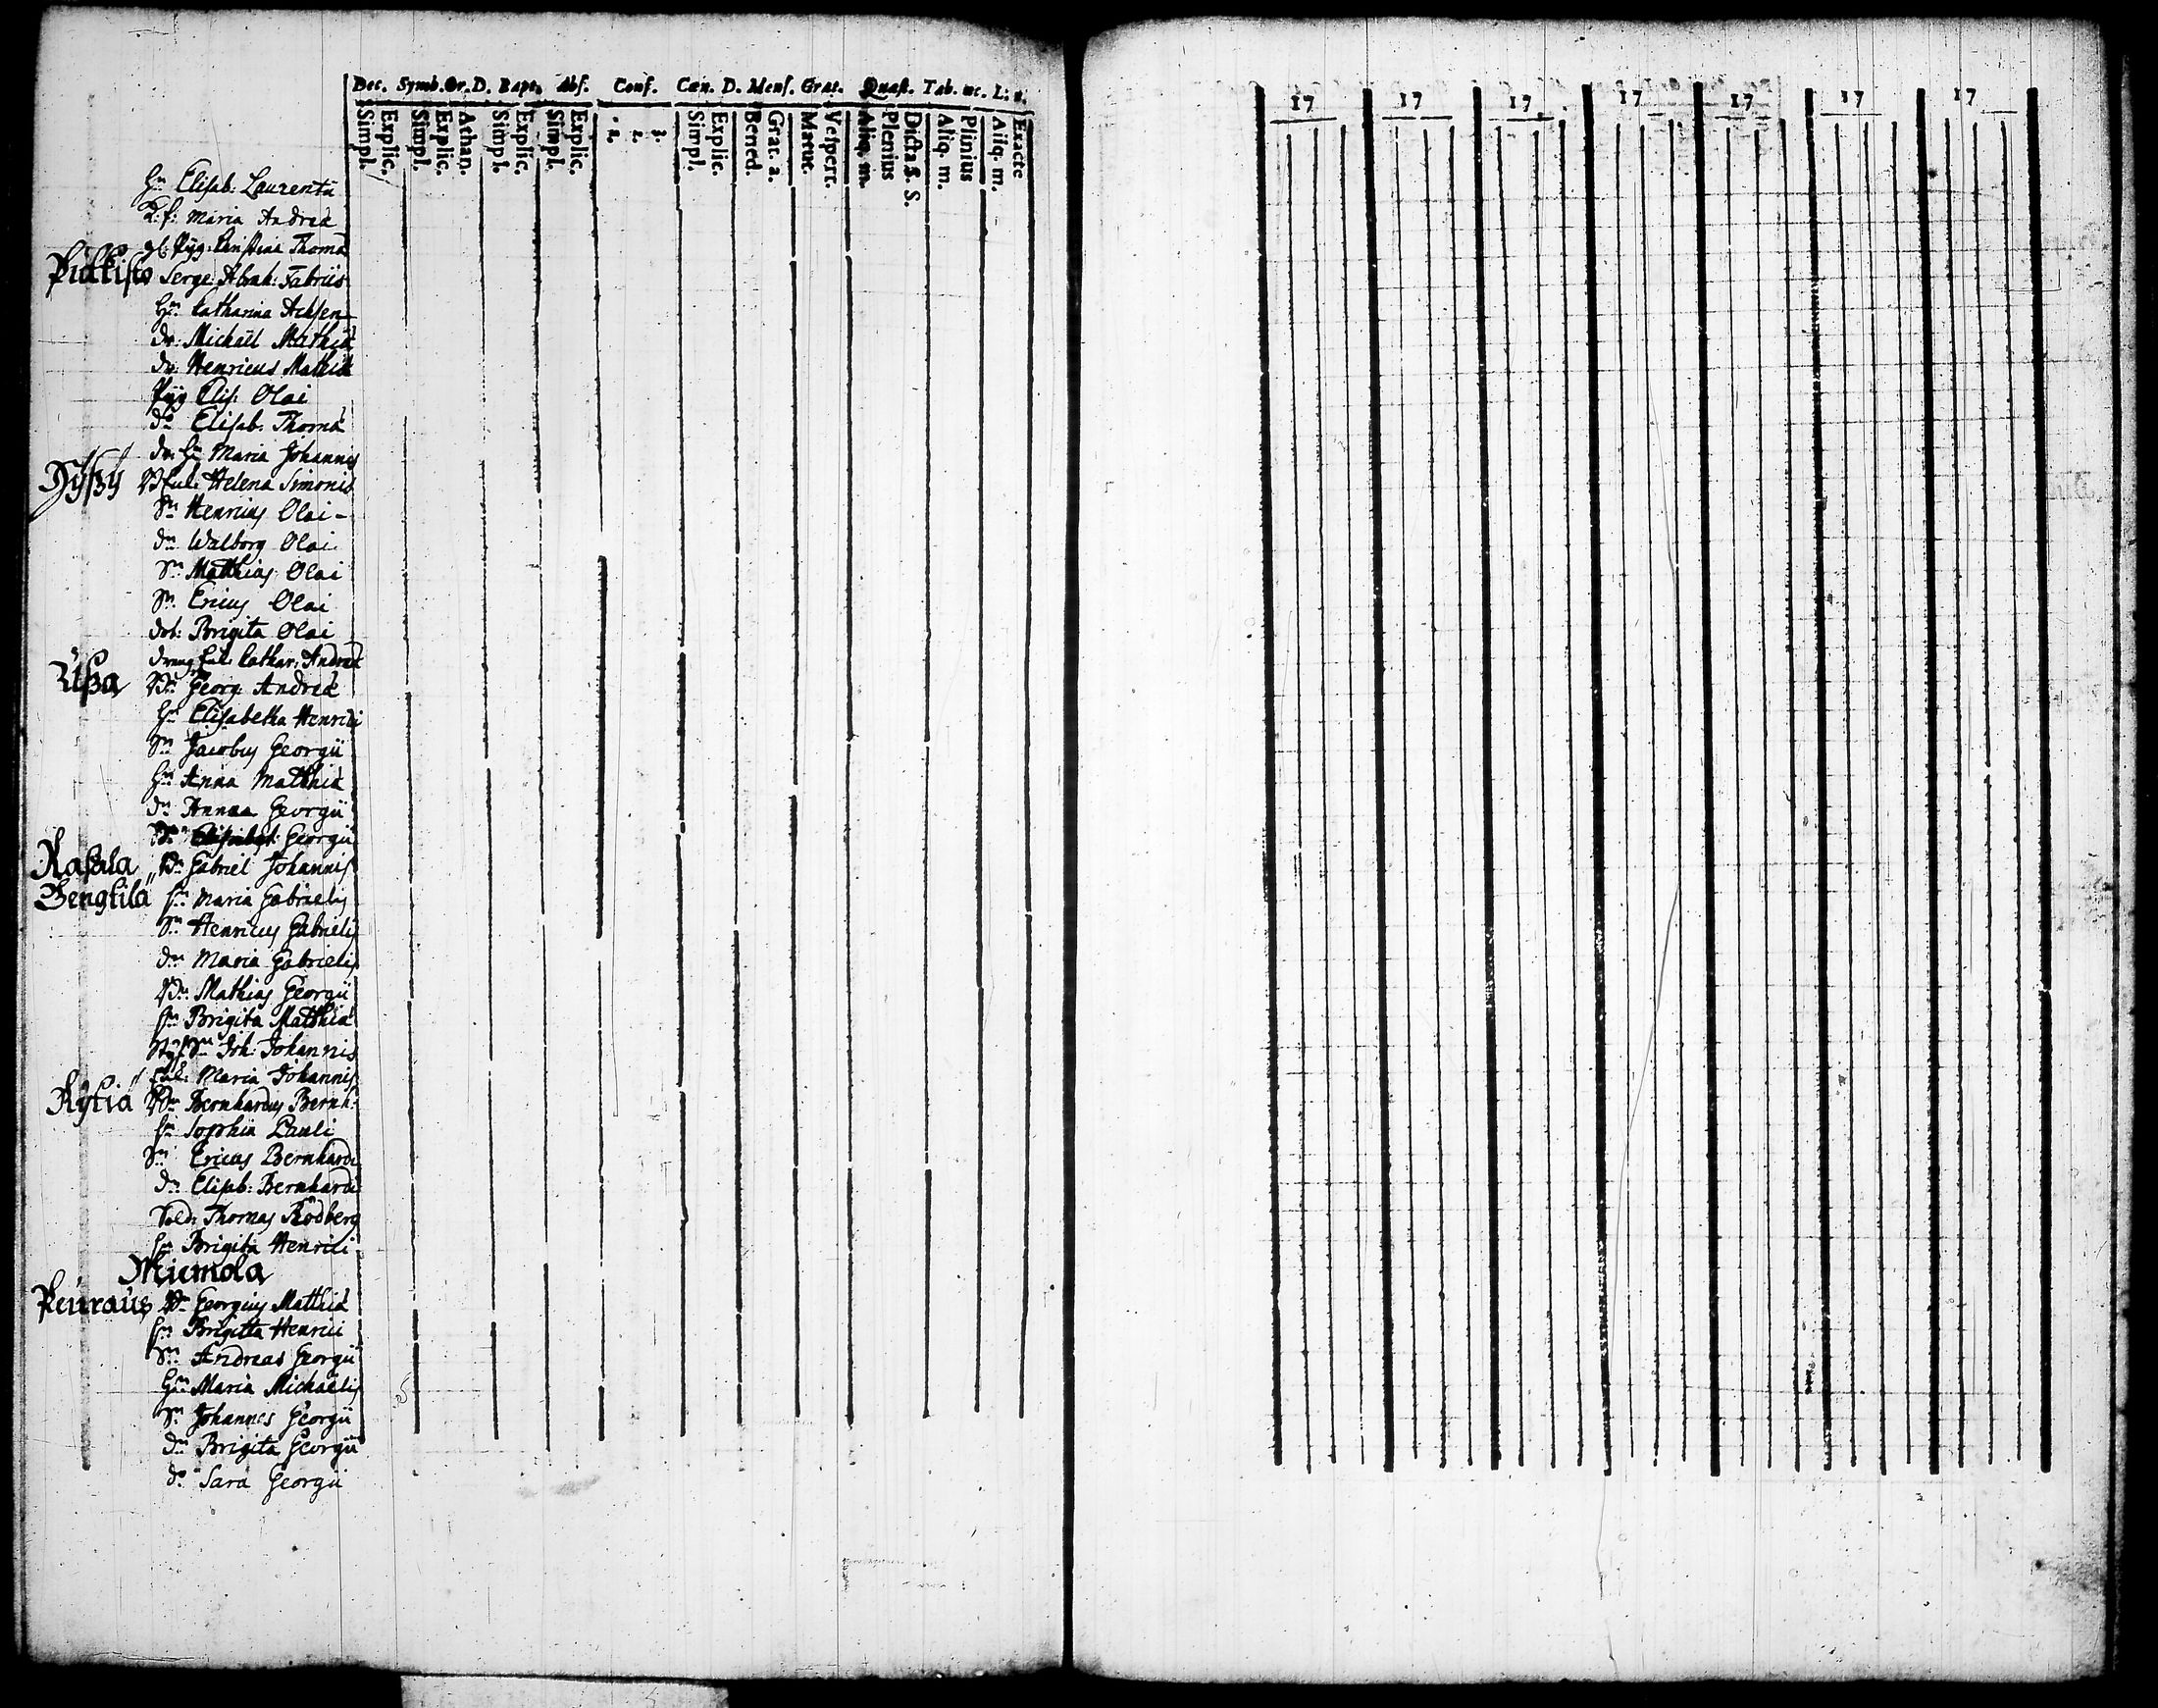 Dec. Symb. Or. D. Bapt. Abs. Conf. Cæn. D. Mens. Grat. Quæst. Tab. œc. L: n.
Simpl. Explic. Simpl. Explic. Athan. Simpl. Explic. Simpl. Explic. 1. 2. 3. Simpl. Explic. Bened. Grat. a. Matut. Vespert. Aliq. m. Plenius Dicta S. S. Aliq. m. Plinius Aliq. m. Exacte
17 17 17 17 17 17 17
Hu Elisab: Laurentii
Maria Andreæ
Pyg: Christina Thomæ
Pulkisto Serge: Abrah: Fabrius
Hu Catharina
dr: Michaël Mathiæ
dr: Henricus Mathiæ
Pyg Elis: Olai
do Elisab: Thomæ
dr: Hu Maria Johannis
Helena Simonis
Sn Henricus Olai -
dr Walborg Olai
Sn Matthias Olai
Sn Ericus Olai
dot: Brigita Olai
Cathar: Andreæ
Ussa Georg Andreæ
Hu Elisabetha Henrici
Sn Jacobus Georgii
Hu Anna Matthiæ
dr Anna Georgii
Georgii
Gabriel Johannis
Bengtila Hu Maria Gabrielis
Sn Henricus Gabrielis
dr Maria Gabrielis
Mathias Georgii
Hu Brigita Matthiæ
Joh: Johannis
Maria Johannis
Kytiä Bernhardus Bernh:
Hu Sophia Pauli
Sn Ericus Bernhardi
dr Elisab: Bernhardi
Sold: Thomas Rödberg
Hu Brigita Henrici
Niemola
Peuraus Georgius Matthiæ
Hu Brigitta Henrici
Sn Andreas Georgii
Hu Maria Michaelis
Sn Johannes Georgii
dr Brigita Georgii
dr Sara Georgii